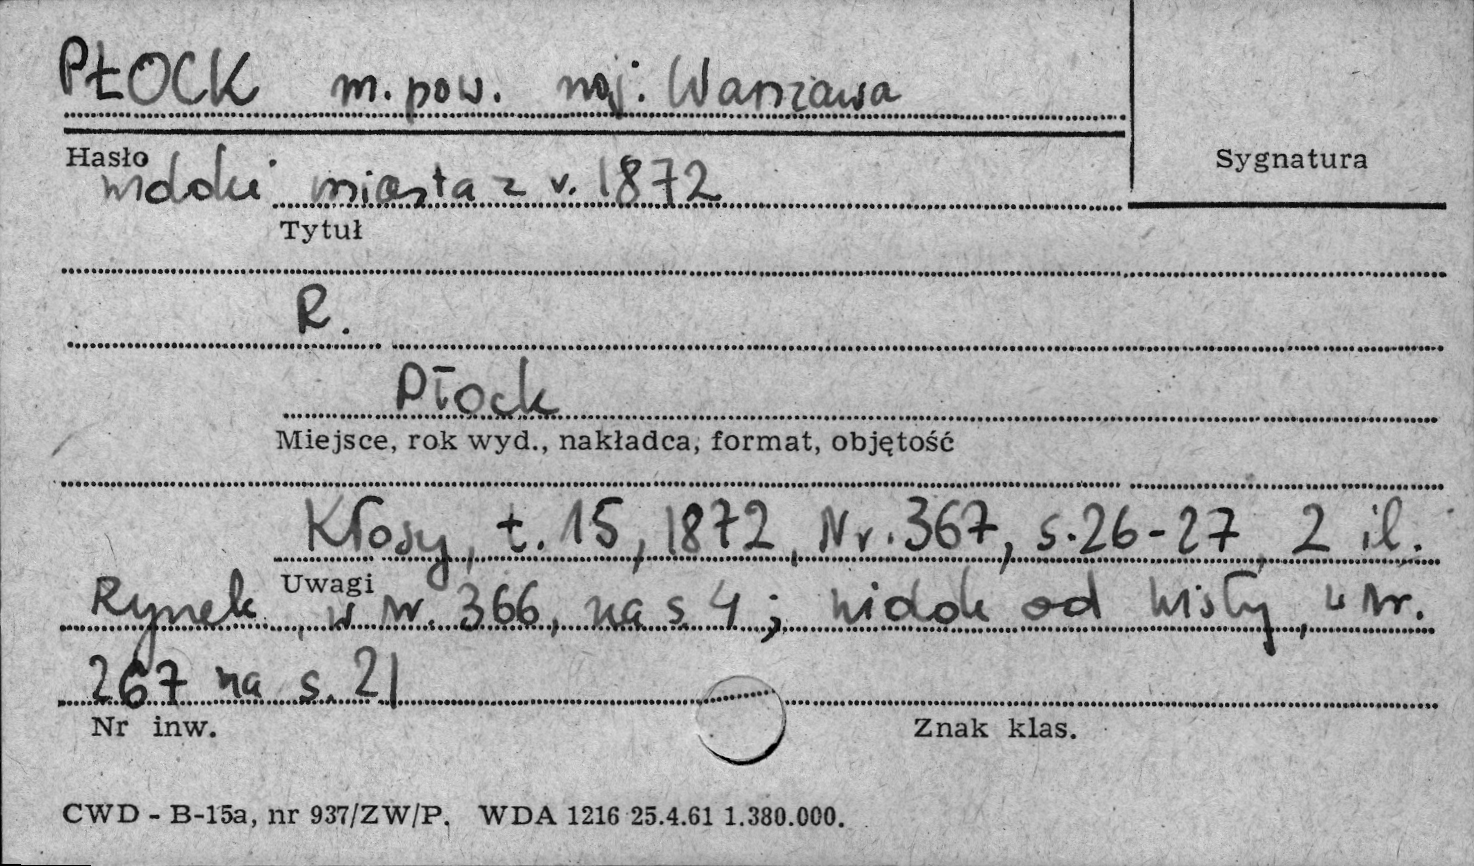 PŁOCK m. pow. woj. Warszawa
Hasło
Sygnatura
widoki miasta z r. 1872
Tytuł
R.
Płock
Miejsce, rok wyd., nakładca, format, objętość
Kłosy, t. 15, 1872, Nr. 367, s. 26-27, 2 il.
Uwagi
Rynek, w nr. 366, na s. 4; widok od Wisły, w nr.
267 na s. 21
Nr inw.
Znak klas.
CWD - B-15a, nr 937/ZW/P. WDA 1216 25.4.61 1.380.000.